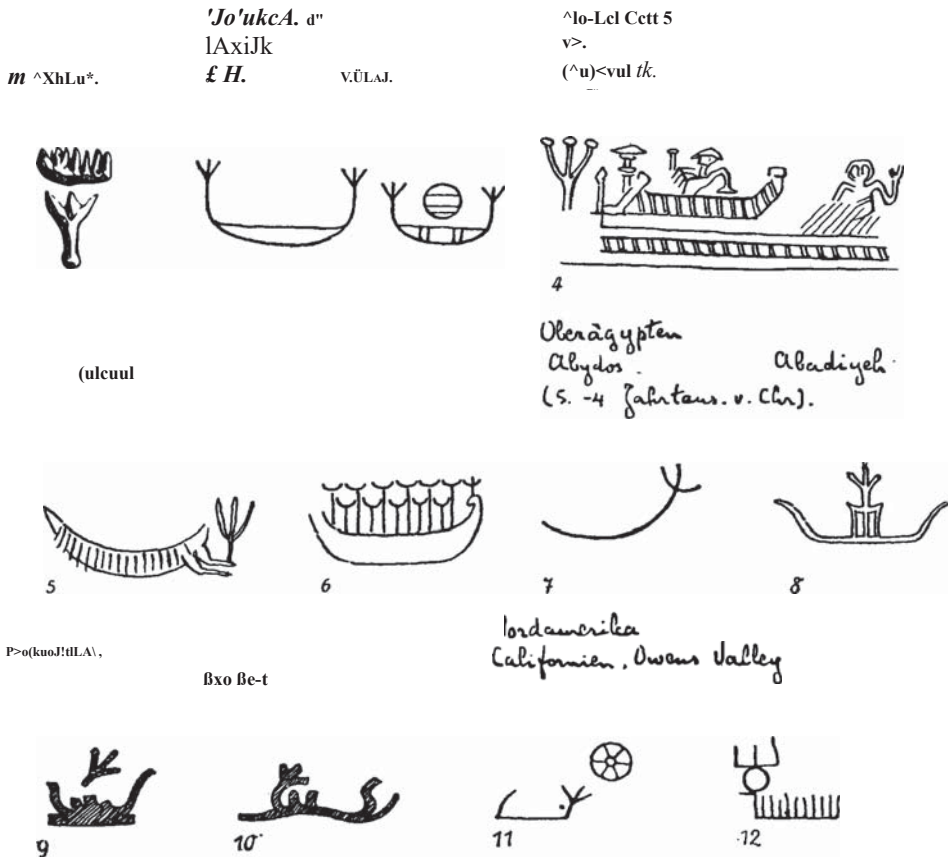 'Jo'ukcA. d"
lAxiJk
£ H.
m ^XhLu*.
V.ÜLAJ.
^lo-Lcl Cctt 5
v>.
(^u)<vul tk.
4
Oberägypten
Abydos. Abadiyeh.
(5. -4 Jahrtaus. v. Chr).
(ulcuul
5 6 7 8
P>o(kuoJ!tlLA\,
ßxo ße-t
lordamerika
Californien, Owens Valley
9 10 11 12